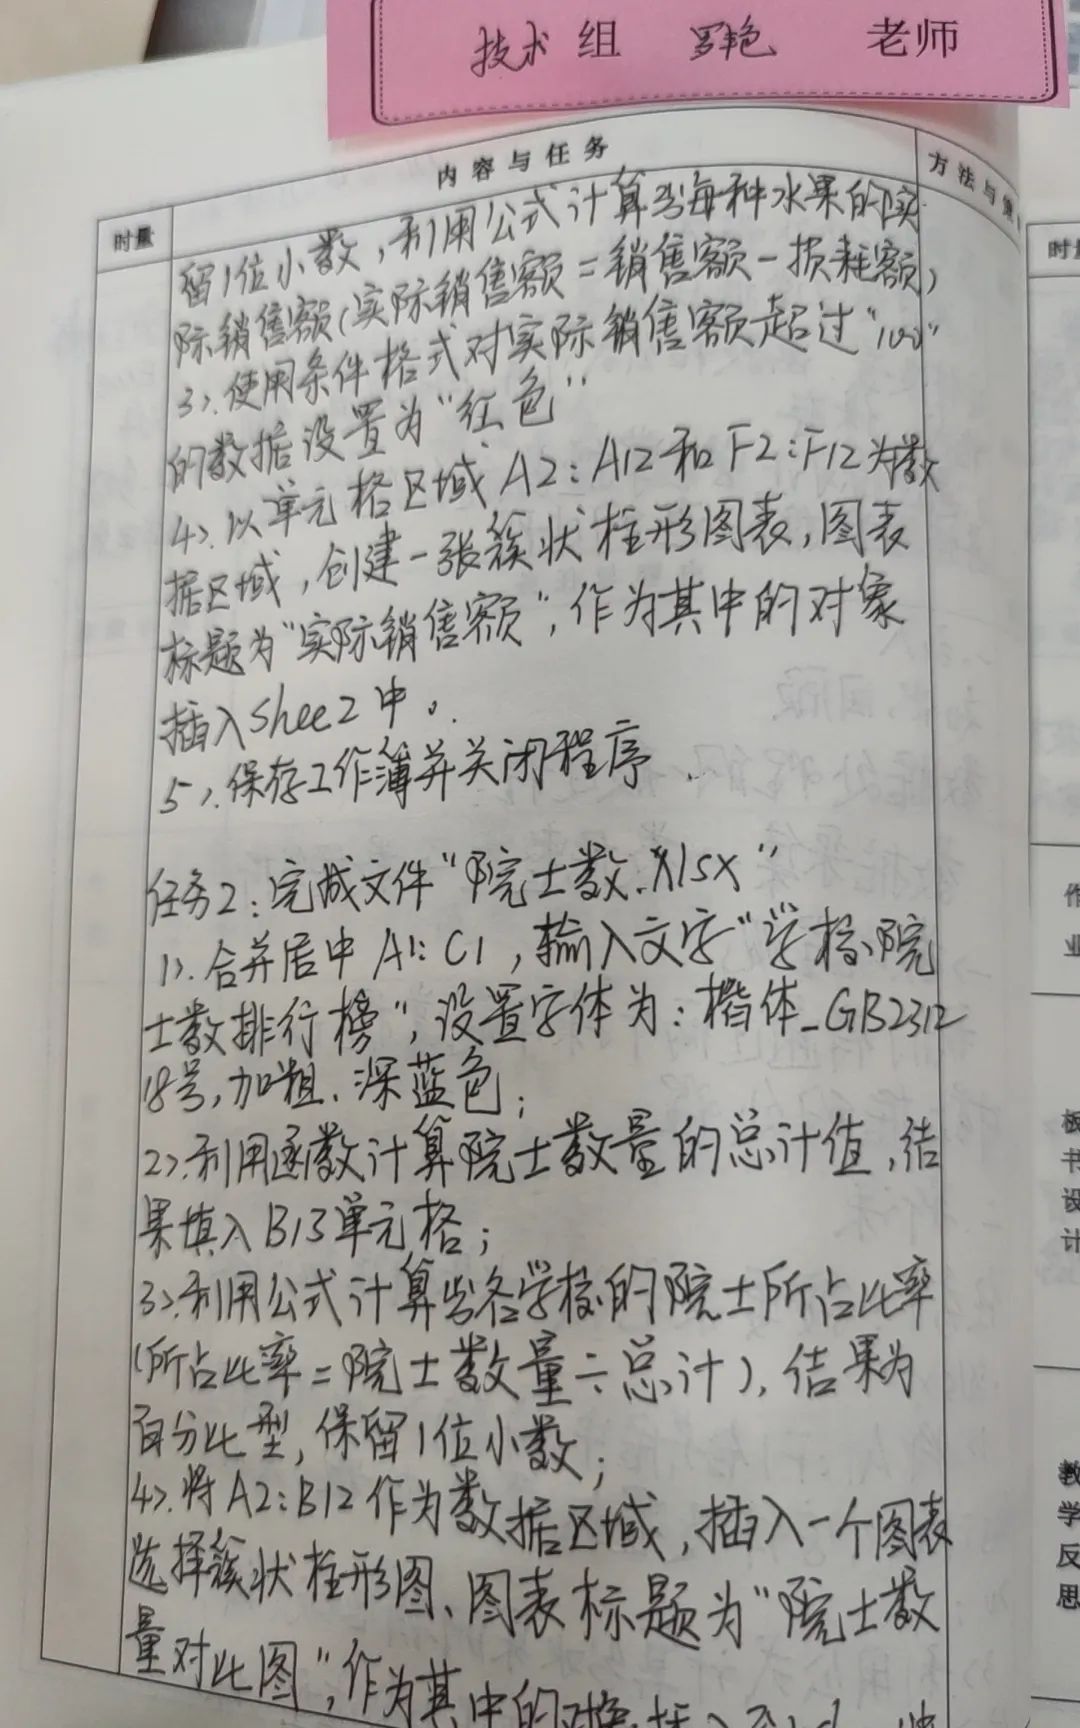 技术 组 罗艳 老师
内容与任务
方法与
时量
留1位小数，利用公式计算出每种水果的实
际销售额（实际销售额=销售额-损耗额）
3>.使用条件格式对实际销售额超过“100”
的数据设置为“红色”
4>.以单元格区域A2:A12和F2:F12为数
据区域，创建一张簇状柱形图表，图表
标题为“实际销售额”，作为其中的对象
插入Shee2中。
5>.保存工作簿并关闭程序.
任务2：完成文件“院士数.xlsx”
1>.合并居中A1:C1，输入文字“学校院
士数排行榜”，设置字体为：楷体_GB2312
18号，加粗、深蓝色；
2>.利用函数计算院士数量的总计值，结
果填入B13单元格；
3>.利用公式计算出各学校的院士所占比率
（所占比率=院士数量÷总计），结果为
百分比型，保留1位小数；
4>.将A2:B12作为数据区域，插入一个图表
选择簇状柱形图、图表标题为“院士数
量对比图”，作为其中的对象插入
时量
作
业
板
书
设
计
教
学
反
思